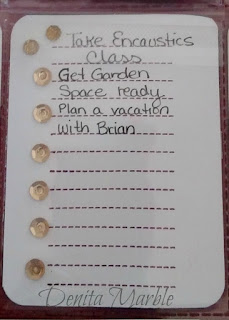 Take Encaustics
Class
Get Garden
Space ready
Plan a vacation
with Brian
Denita Marble